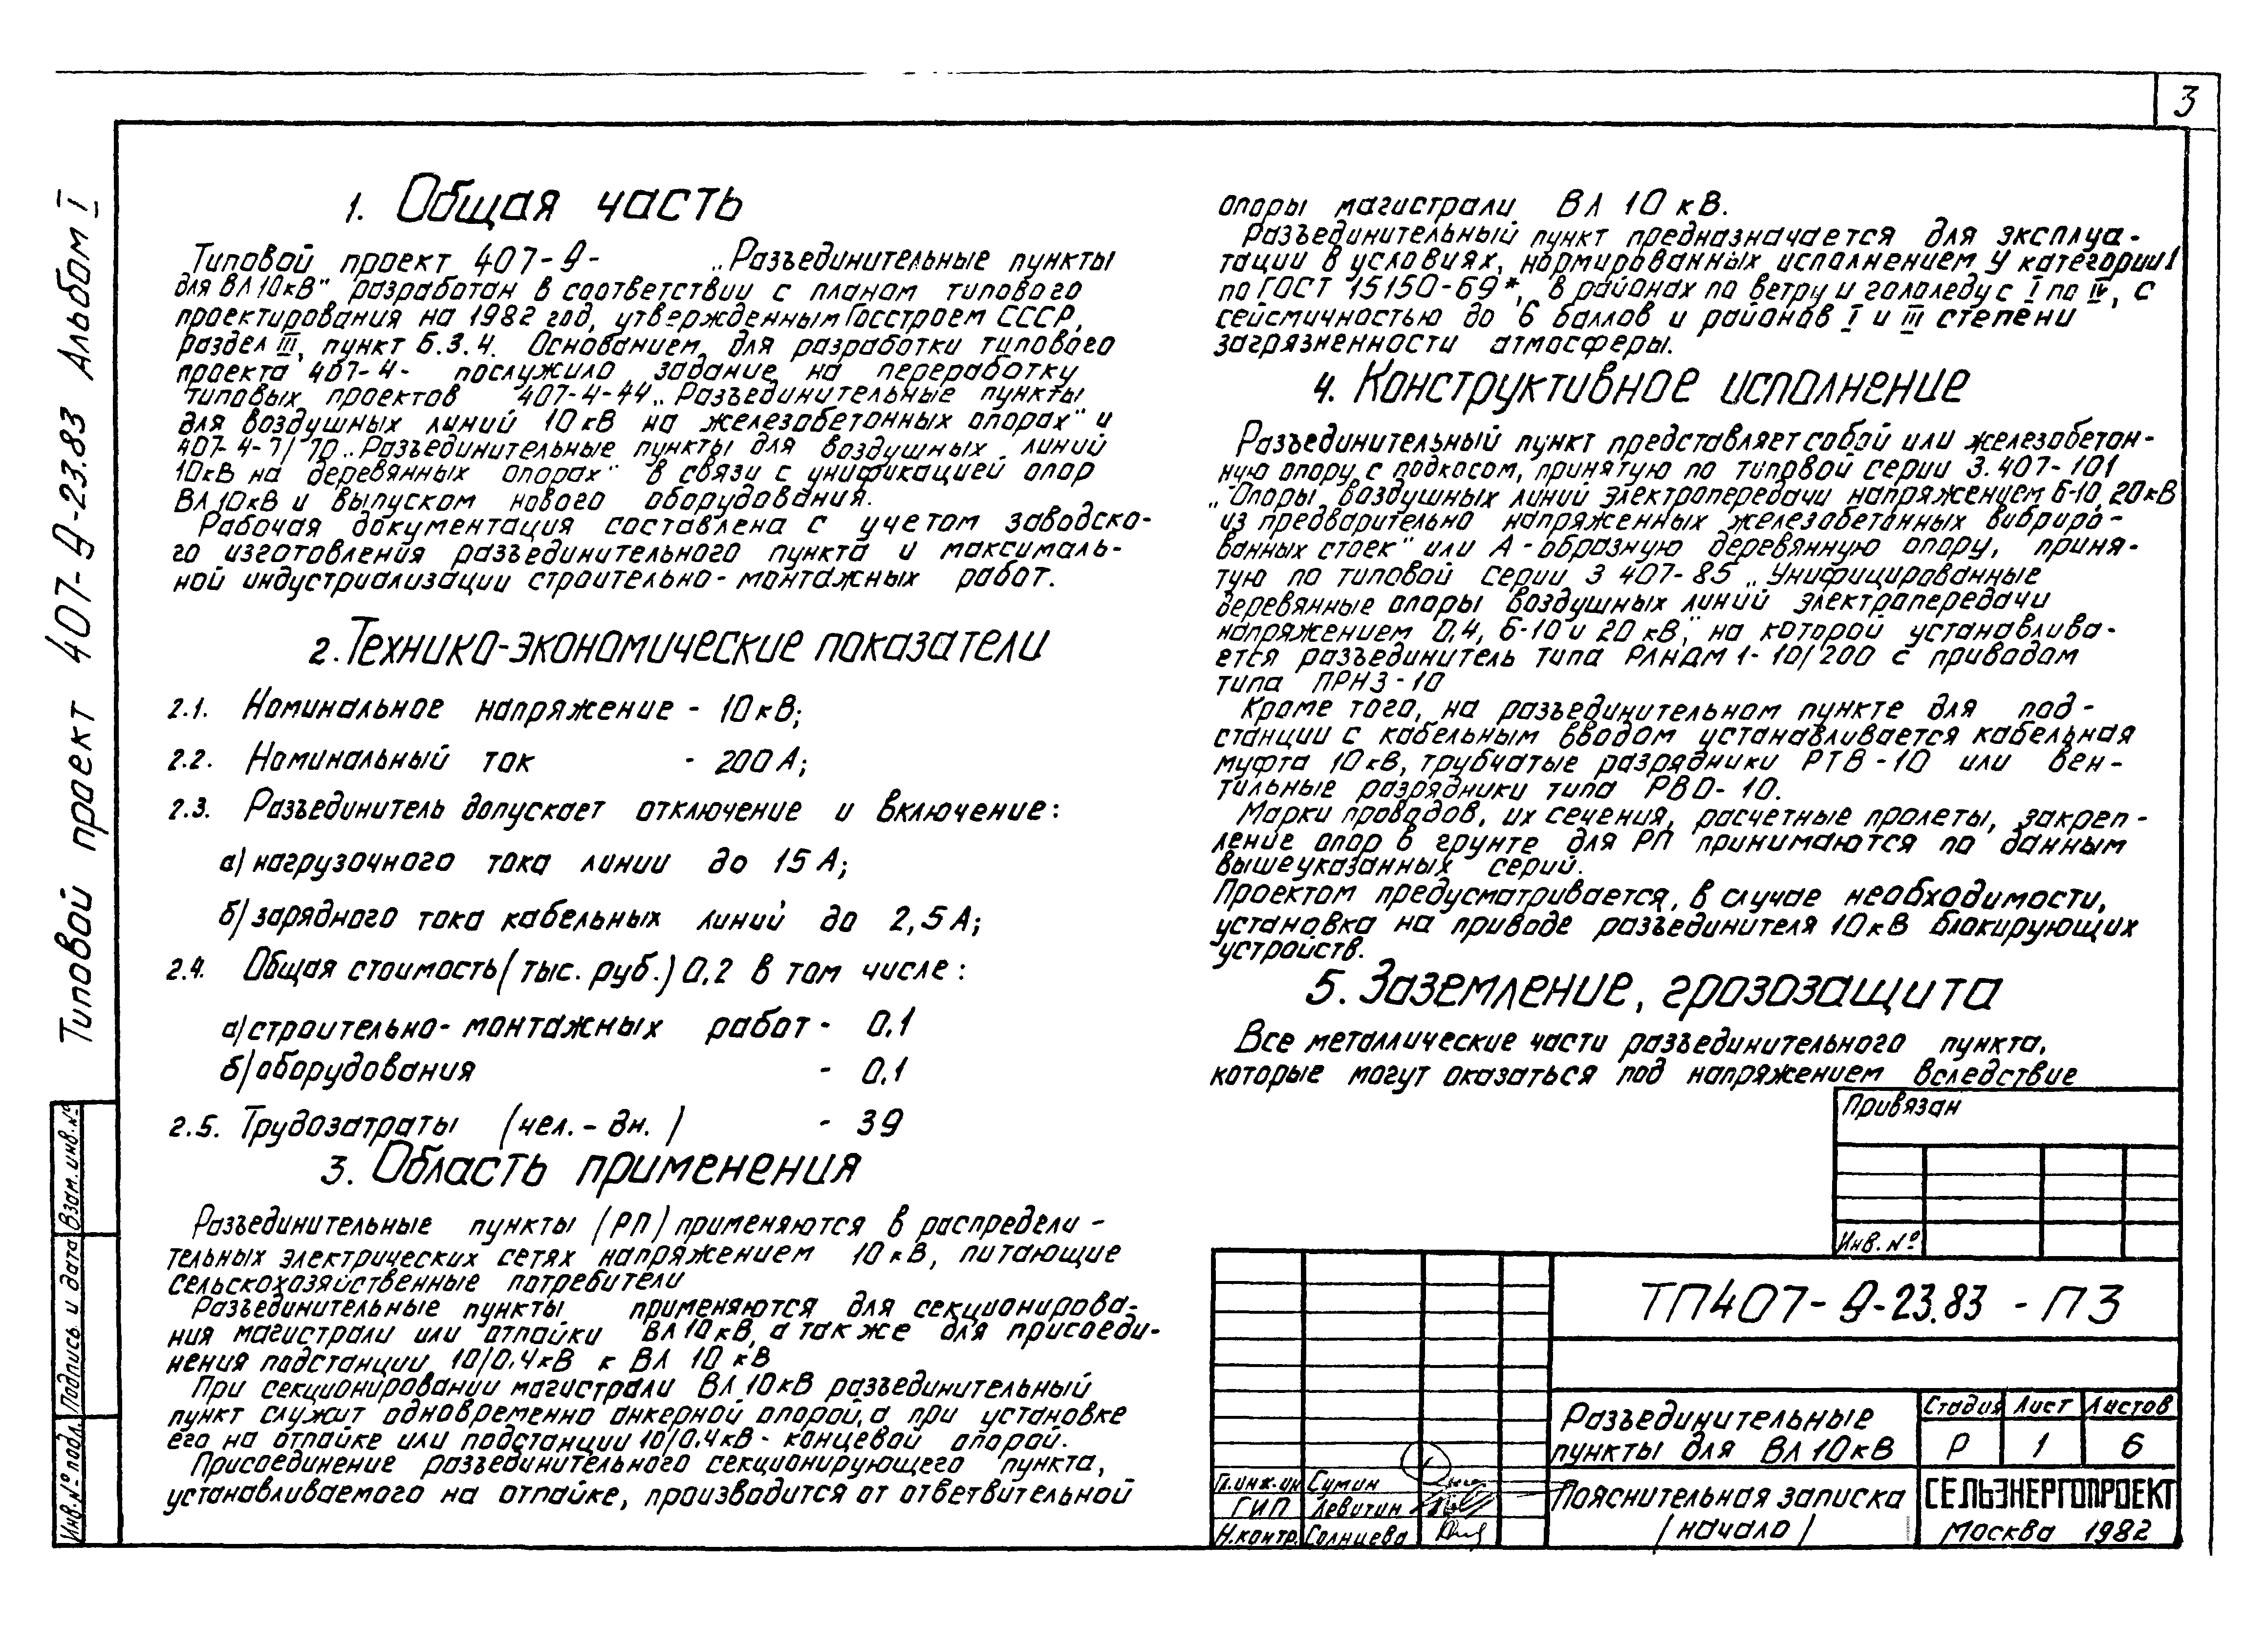 3
Типовой проект 407-9-23.83 Альбом I
1. Общая часть
Типовой проект 407-9- „Разъединительные пункты
для ВЛ 10кВ" разработан в соответствии с планом типового
проектирования на 1982 год, утвержденным Госстроем СССР,
раздел III, пункт 6.3.4. Основанием для разработки типового
проекта 407-4- послужило задание на переработку
типовых проектов 407-4-44 „Разъединительные пункты
для воздушных линий 10кВ на железобетонных опорах" и
407-4-7/70 „Разъединительные пункты для воздушных линий
10кВ на деревянных опорах" в связи с унификацией опор
ВЛ 10кВ и выпуском нового оборудования.
Рабочая документация составлена с учетом заводско-
го изготовления разъединительного пункта и максималь-
ной индустриализации строительно-монтажных работ.
2. Технико-экономические показатели
2.1. Номинальное напряжение - 10кВ;
2.2. Номинальный ток - 200А;
2.3. Разъединитель допускает отключение и включение:
а) нагрузочного тока линии до 15А;
б) зарядного тока кабельных линий до 2,5А;
2.4. Общая стоимость (тыс. руб.) 0,2 в том числе:
а) строительно-монтажных работ - 0,1
б) оборудования - 0,1
2.5. Трудозатраты (чел.-дн.) - 39
3. Область применения
Разъединительные пункты (РП) применяются в распредели-
тельных электрических сетях напряжением 10кВ, питающие
сельскохозяйственные потребители
Разъединительные пункты применяются для секционирова-
ния магистрали или отпайки ВЛ 10кВ, а также для присоеди-
нения подстанции 10/0,4кВ к ВЛ 10кВ
При секционировании магистрали ВЛ 10кВ разъединительный
пункт служит одновременно анкерной опорой, а при установке
его на отпайке или подстанции 10/0,4кВ - концевой опорой.
Присоединение разъединительного секционирующего пункта,
устанавливаемого на отпайке, производится от ответвительной
опоры магистрали ВЛ 10кВ.
Разъединительный пункт предназначается для эксплуа-
тации в условиях, нормированных исполнением У категории 1
по ГОСТ 15150-69*, в районах по ветру и гололеду с I по IV, с
сейсмичностью до 6 баллов и районов I и III степени
загрязненности атмосферы.
4. Конструктивное исполнение
Разъединительный пункт представляет собой или железобетон-
ную опору с подкосом, принятую по типовой серии 3.407-101
„Опоры воздушных линий электропередачи напряжением 6-10, 20кВ
из предварительно напряженных железобетонных вибриро-
ванных стоек" или А-образную деревянную опору, приня-
тую по типовой серии 3 407-85 „Унифицированные
деревянные опоры воздушных линий электропередачи
напряжением 0,4, 6-10 и 20 кВ," на которой устанавлива-
ется разъединитель типа РЛНДМ 1-10/200 с приводом
типа ПРНЗ-10
Кроме того, на разъединительном пункте для под-
станции с кабельным вводом устанавливается кабельная
муфта 10кВ, трубчатые разрядники РТВ-10 или вен-
тильные разрядники типа РВО-10.
Марки проводов, их сечения, расчетные пролеты, закреп-
ление опор в грунте для РП принимаются по данным
вышеуказанных серий.
Проектом предусматривается, в случае необходимости,
установка на приводе разъединителя 10кВ блокирующих
устройств.
5. Заземление, грозозащита
Все металлические части разъединительного пункта,
которые могут оказаться под напряжением вследствие
Привязан
Инв. №
ТП 407-9-23.83 - ПЗ
Разъединительные
пункты для ВЛ 10кВ
Стадия Лист Листов
Р 1 6
Гл.инж.ин Сумин
ГИП Левитин
Н.контр. Солнцева
Пояснительная записка
(начало)
СЕЛЬЭНЕРГОПРОЕКТ
Москва 1982
Инв.№ подл. Подпись и дата Взам.инв.№